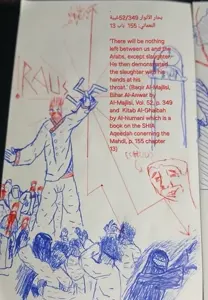 بحار الأنوار 52/349 غيبة
النعماني: 155 باب 13
RAUS
'There will be nothing
left between us and the
Arabs, except slaughter-
He then demonstrated
the slaughter with his
hands at his
throat.' (Baqir Al-Majlisi,
Bihar Al-Anwar by
Al-Majlisi, Vol. 52, p. 349
and Kitab Al-Ghaibah
by Al-Numani which is a
book on the SHIA
Aqeedah conerning the
Mahdi, p. 155 chapter
13)